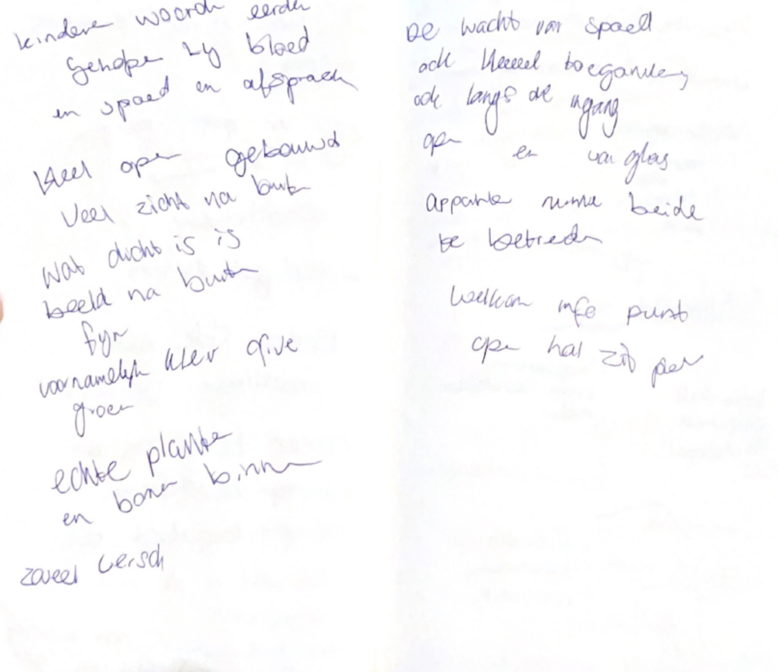 kindere woordn eerder
geholpe bij bloed
en spoed en afspraak
Heel open gebouwd
veel zicht na buite
wat dicht is is
beeld na buite
fijn
voornamelijk kleur olive
groen
echte plante
en bomen binne
zoveel
De wacht van spoed
ook heeel toegankelig
ook langs de ingang
open en van glas
apparte ruimte beide
te betreden
Welkom info punt
open hal zit